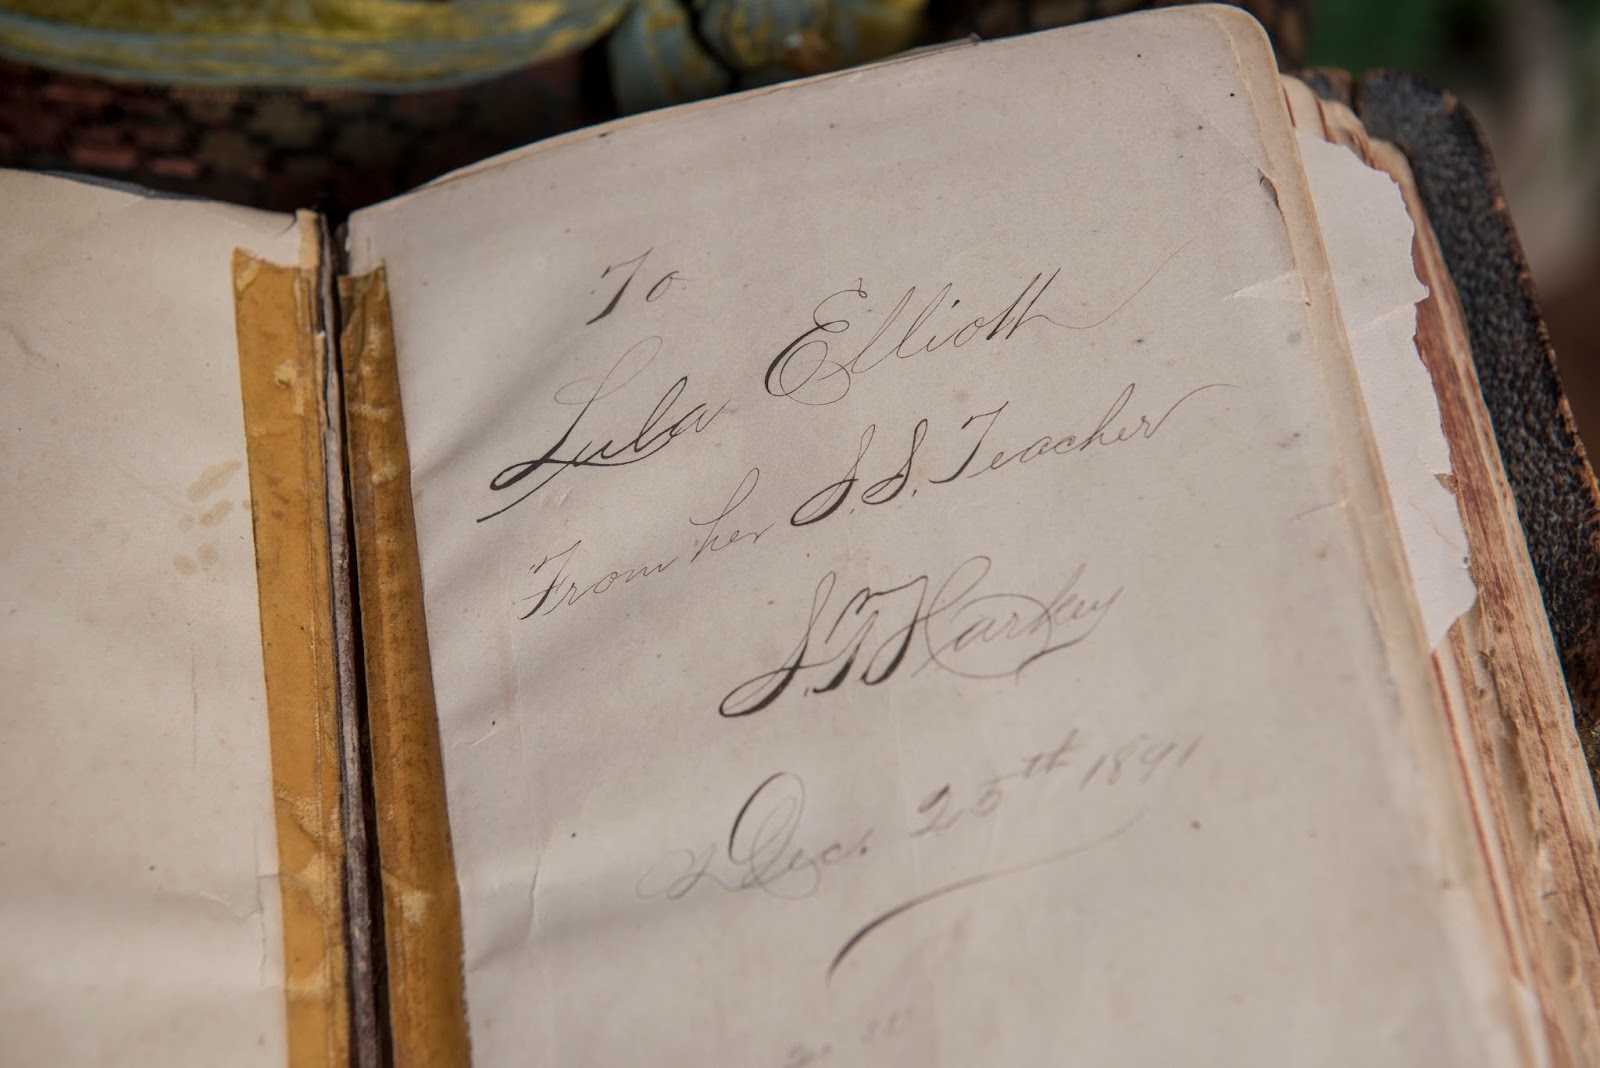 To
Lula Elliott
From her S.S. Teacher
S.T. Harkey
Dec. 25th 1891